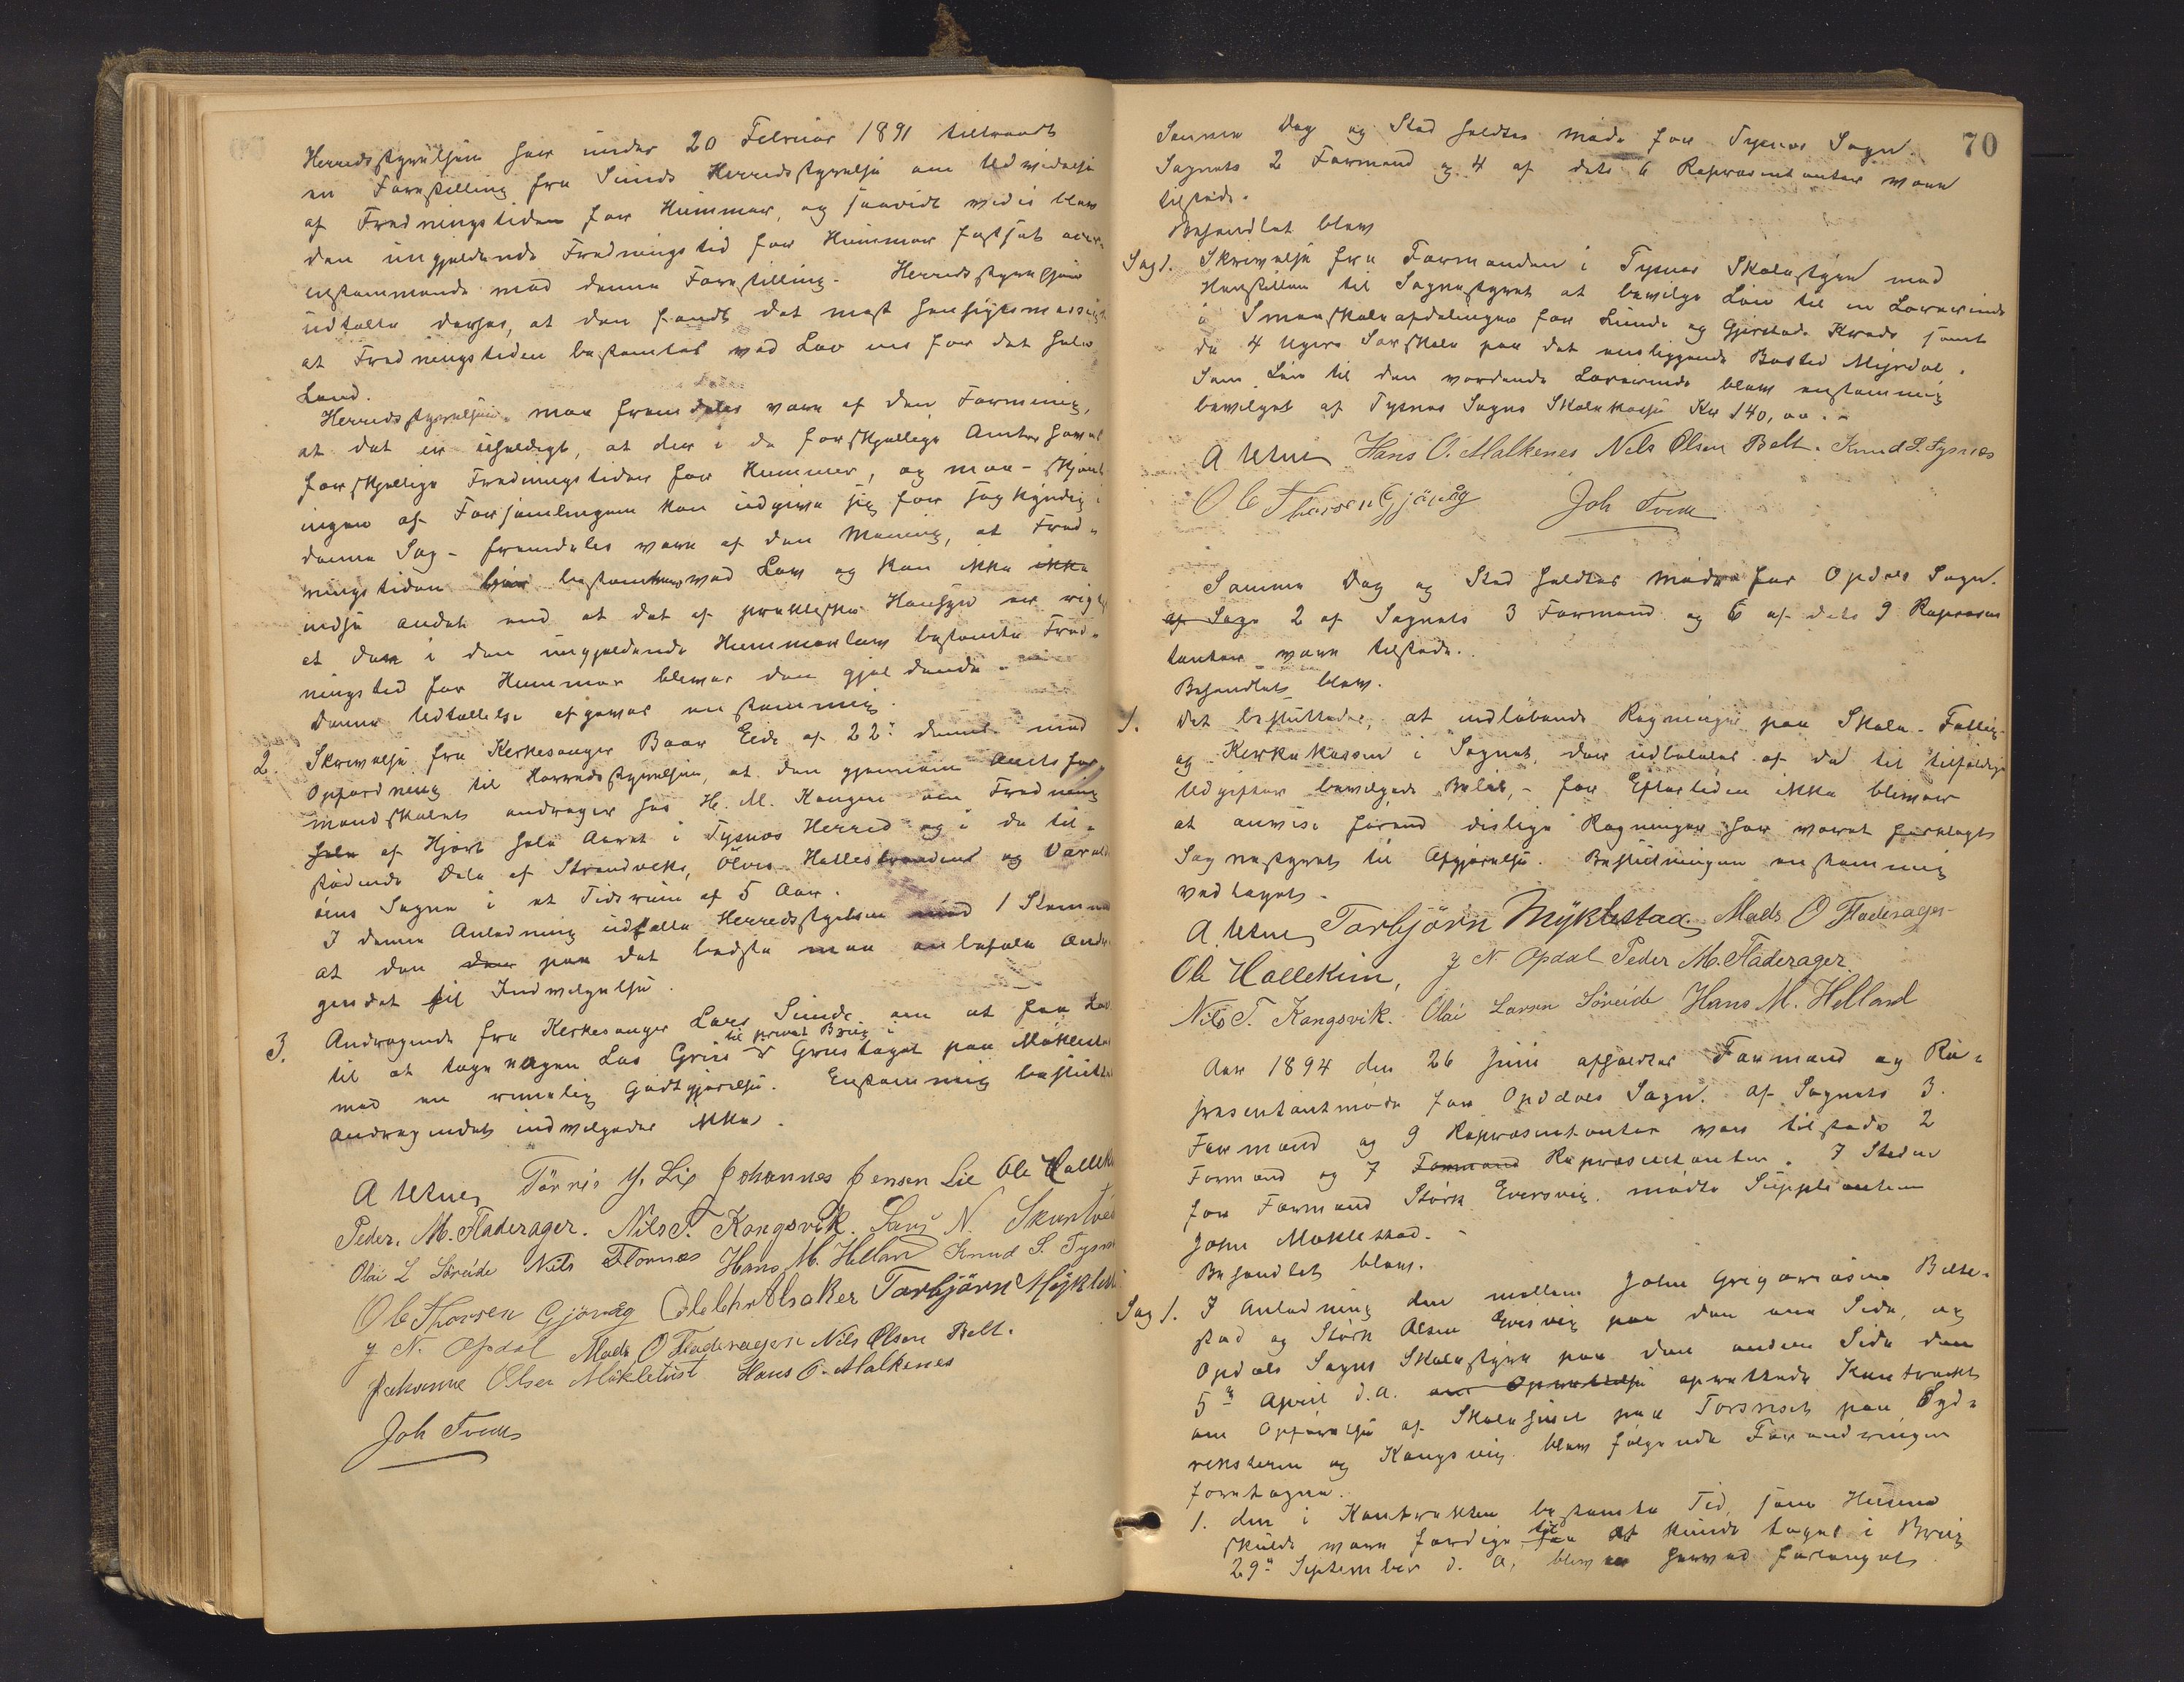 Herredsstyrelsen har under 20 Februar 1891 tiltraadt
en Forestilling fra Sunds Herredsstyrelse om Udvidelse
af Fredningstiden for Hummer, og saavidt vides blev
den nugjeldende Fredningstid for Hummer fastsat over-
enstemmende med denne Forestilling. Herredsstyrelsen
udtalte derhos, at den fandt det mest hensigtsmæssigt
at Fredningstiden bestemtes ved Lov ens for det hele
Land.
Herredsstyrelsen maa fremdeles være af den Formening,
at det er uheldigt, at der i de forskjellige Amter haves
forskjellige Fredningstider for Hummer, og maa - skjønt
ingen af Forsamlingen kan udgive sig for sagkyndig i
denne Sag - fremdeles være af den Mening, at Fred-
ningstiden bør bestemmes ved Lov og kan ikke ikke
indse andet end at det af praktiske Hensyn er rigtigt
at den i den nugjeldende Hummerlov bestemte Fred-
ningstid for Hummer bliver den gjeldende.
Denne Udtallelse afgaves enstemmig.
2. Skrivelse fra Kirkesanger Baar Eide af 22. dennes med
Opfordning til Herredsstyrelsen, at den gjennem Amtsfor-
mandskabet andrager hos H. M. Kongen om Fredning
hele af Hjort hele Aaret i Tysnes Herred og i de til-
stødende Dele af Strandviks, Ølves Hatlestrandens og Varalds-
øens Sogne i et Tidsrum af 5 Aar.
I denne Anledning udtalte Herredsstyrelsen mod 1 Stemme
at den den paa det bedste maa anbefale Andra-
gendet til Indvilgelse.
3. Andragende fra Kirkesanger Lars Sunde om at faa Lov
til privat Brug
til at tage nogen Las Grus i Grustaget paa Møklestad
mod en rimelig Godtgjørelse. Enstemmig besluttet
Andragendet indvilgedes ikke.
A Utne Tørris J. Lie Johannes Jensen Lie Ole Hallek
Peder M. Fladerager. Nils T. Kongsvik. Lars N. Skartve
Olai L Søreide Nils Flornæs Hans M. Helland Knud S. Tysn
Ole Thorsen Gjøvåg Ole Chr Alsaker Torbjørn Myklest
J N. Opdal Mads O Fladerager Nils Olsen Belt.
Johanne Olsen Møkletust Hans O. Malkenes
Joh Tveit
70
Samme Dag og Sted holdtes Møde for Tysnes Sogn.
Sognets 2 Formænd og 4 af dets 6 Repræsentanter vare
tilstede.
Behandlet blev
Sag 1. Skrivelse fra Formanden i Tysnes Skolestyre med
Henstillen til Sognestyret at bevilge Løn til en Lærerinde
i Smaaskoleafdelingen for Lunde og Gjerstad Kreds samt
de 4 Ugers Særskole paa det ensliggende Bosted Myrdal.
Som Løn til den vordende Lærerinde blev enstemmig
bevilget af Tysnes Sogns Skolekasse Kr 140,00.-
A Utne Hans O. Malkenes Nils Olsen Belt. Knud S. Tysnes
Ole Thorsen Gjøvåg Joh Tveit
Samme Dag og Sted holdtes Møde for Opdals Sogn.
af Sogn 2 af Sognets 3 Formænd og 6 af dets 9 Repræsen
tanter vare tilstede.
Behandlet blev.
1. Det besluttedes, at indløbende Regninger paa Skole- Fattig-
og Kirkekassen i Sognet, der udbetales af de til tilfældige
Udgifter bevilgede Beløb, - for Eftertiden ikke bliver
at anvise førend dislige Regninger har været forelagt
Sognestyret til Afgjørelse. Beslutningen enstemmig
vedtaget.
A. Utne Torbjørn Myklestad Mads O Fladerager
Ole Hallekim, J N. Opdal Peder M. Fladerager
Nils T. Kongsvik. Olai Larsen Søreide Hans M. Helland
Aar 1894 den 26 Juni afholdtes Formand og Re-
præsentantmøde for Opdals Sogn. Af Sognets 3.
Formænd og 9 Repræsentanter vare tilstede 2
Formænd og 7 Formænd Repræsentanter. I Stedet
for Formand Størk Eversvig mødte Suppleanten
John Møklestad.-
Behandlet blev.
Sag 1. I Anledning den mellem John Grigoriøsen Bakke-
stad og Størk Olsen Eversvig paa den ene Side, og
Opdals Sogns Skolestyre paa den anden Side den
5te April d.A. om Oprettelse oprettede Kontrakt
om Opførelse af Skolehuset paa Torsneset paa Syd-
reksteren og Kongsvig blev følgende Forandringer
foretagne.
1. den i Kontrakten bestemte Tid, som Husene
skulde være færdige til at kunde tages i Brug
29de September d. A, blev herved forlænget